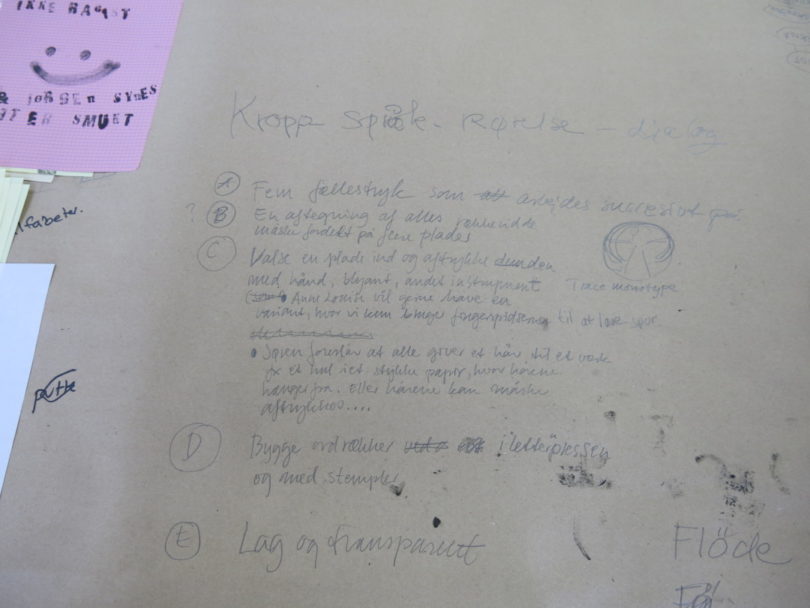 IKKE RAGIST
& JØRGEN SYNES
SMUKT
alfabeter.
Kropp språk. Rørelse – dialog
A Fem fællestryk som att arbejdes succesivt på.
? B En aftegning af alles rækkevidde
måske fordelt på flere plader
C Valse en plade ind og aftrykke
med hånd, blyant, andet instrument Trace monotype
Anne Louise vil gerne have en
variant, hvor vi kun bruger fingerspidserne til at lave spor.
• Søren foreslår at alle giver et hår til et værk
fx et hul i et stykke papir, hvor hårene
hænger fra. Eller hårene kan måske
aftrykkes....
putte
D Bygge ordrækker i letterpressen
og med stempler
E Lag og transparent
Flöde